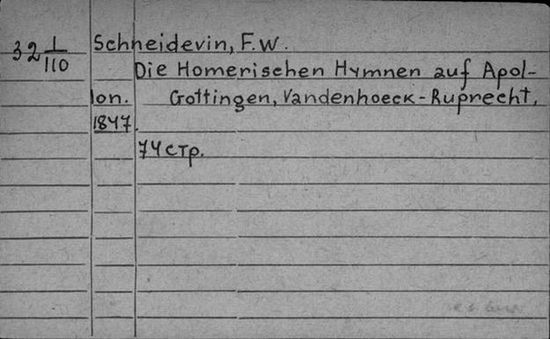 32 1/110 Schneidevin, F.W.
Die Homerischen Hymnen auf Apol-
lon. Gottingen, Vandenhoeck-Ruprecht,
1847.
74 стр.